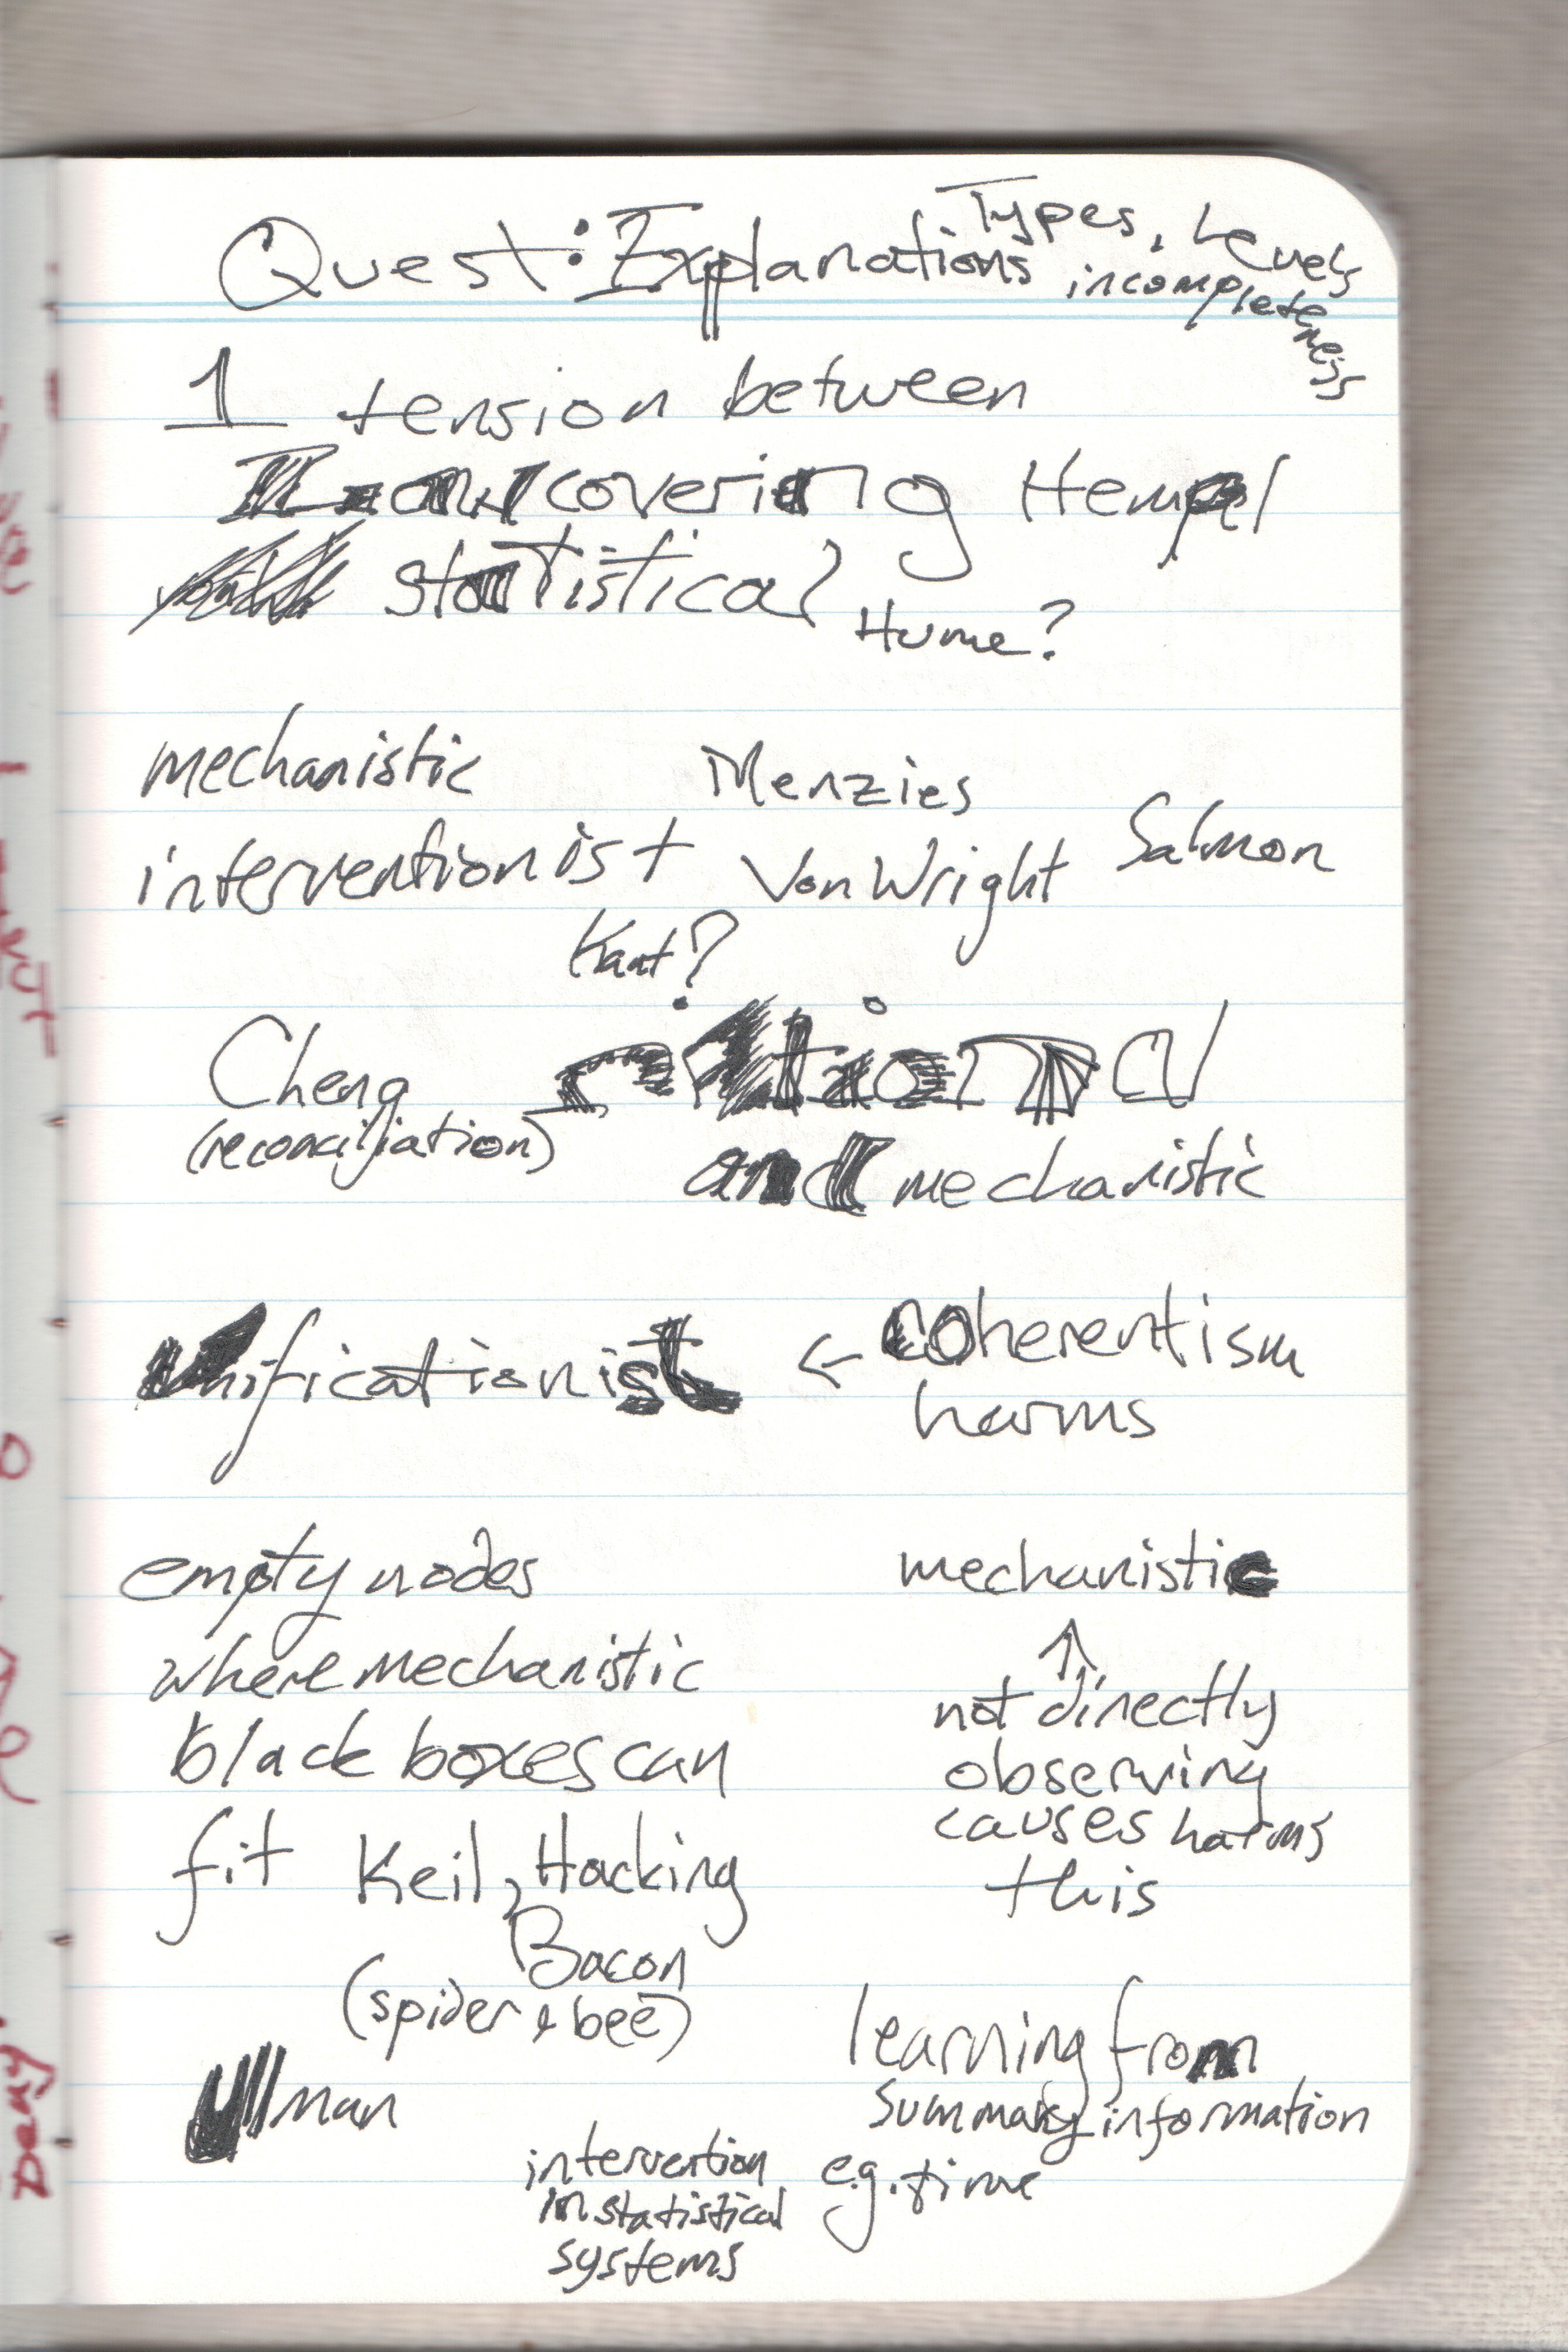 Quest: Explanations Types, Levels
incompleteness
1 tension between
covering Hempel
statistical Hume?
mechanistic Menzies
interventionist Von Wright Salmon
Kant?
Cheng rational
(reconciliation) and mechanistic
unificationist ← coherentism
harms
empty nodes
where mechanistic
black boxes can
fit Keil, Hacking
Bacon
(spider & bee)
Ullman
mechanistic
↑
not directly
observing
causes harms
this
learning from
summary information
e.g. time
intervention
in statistical
systems